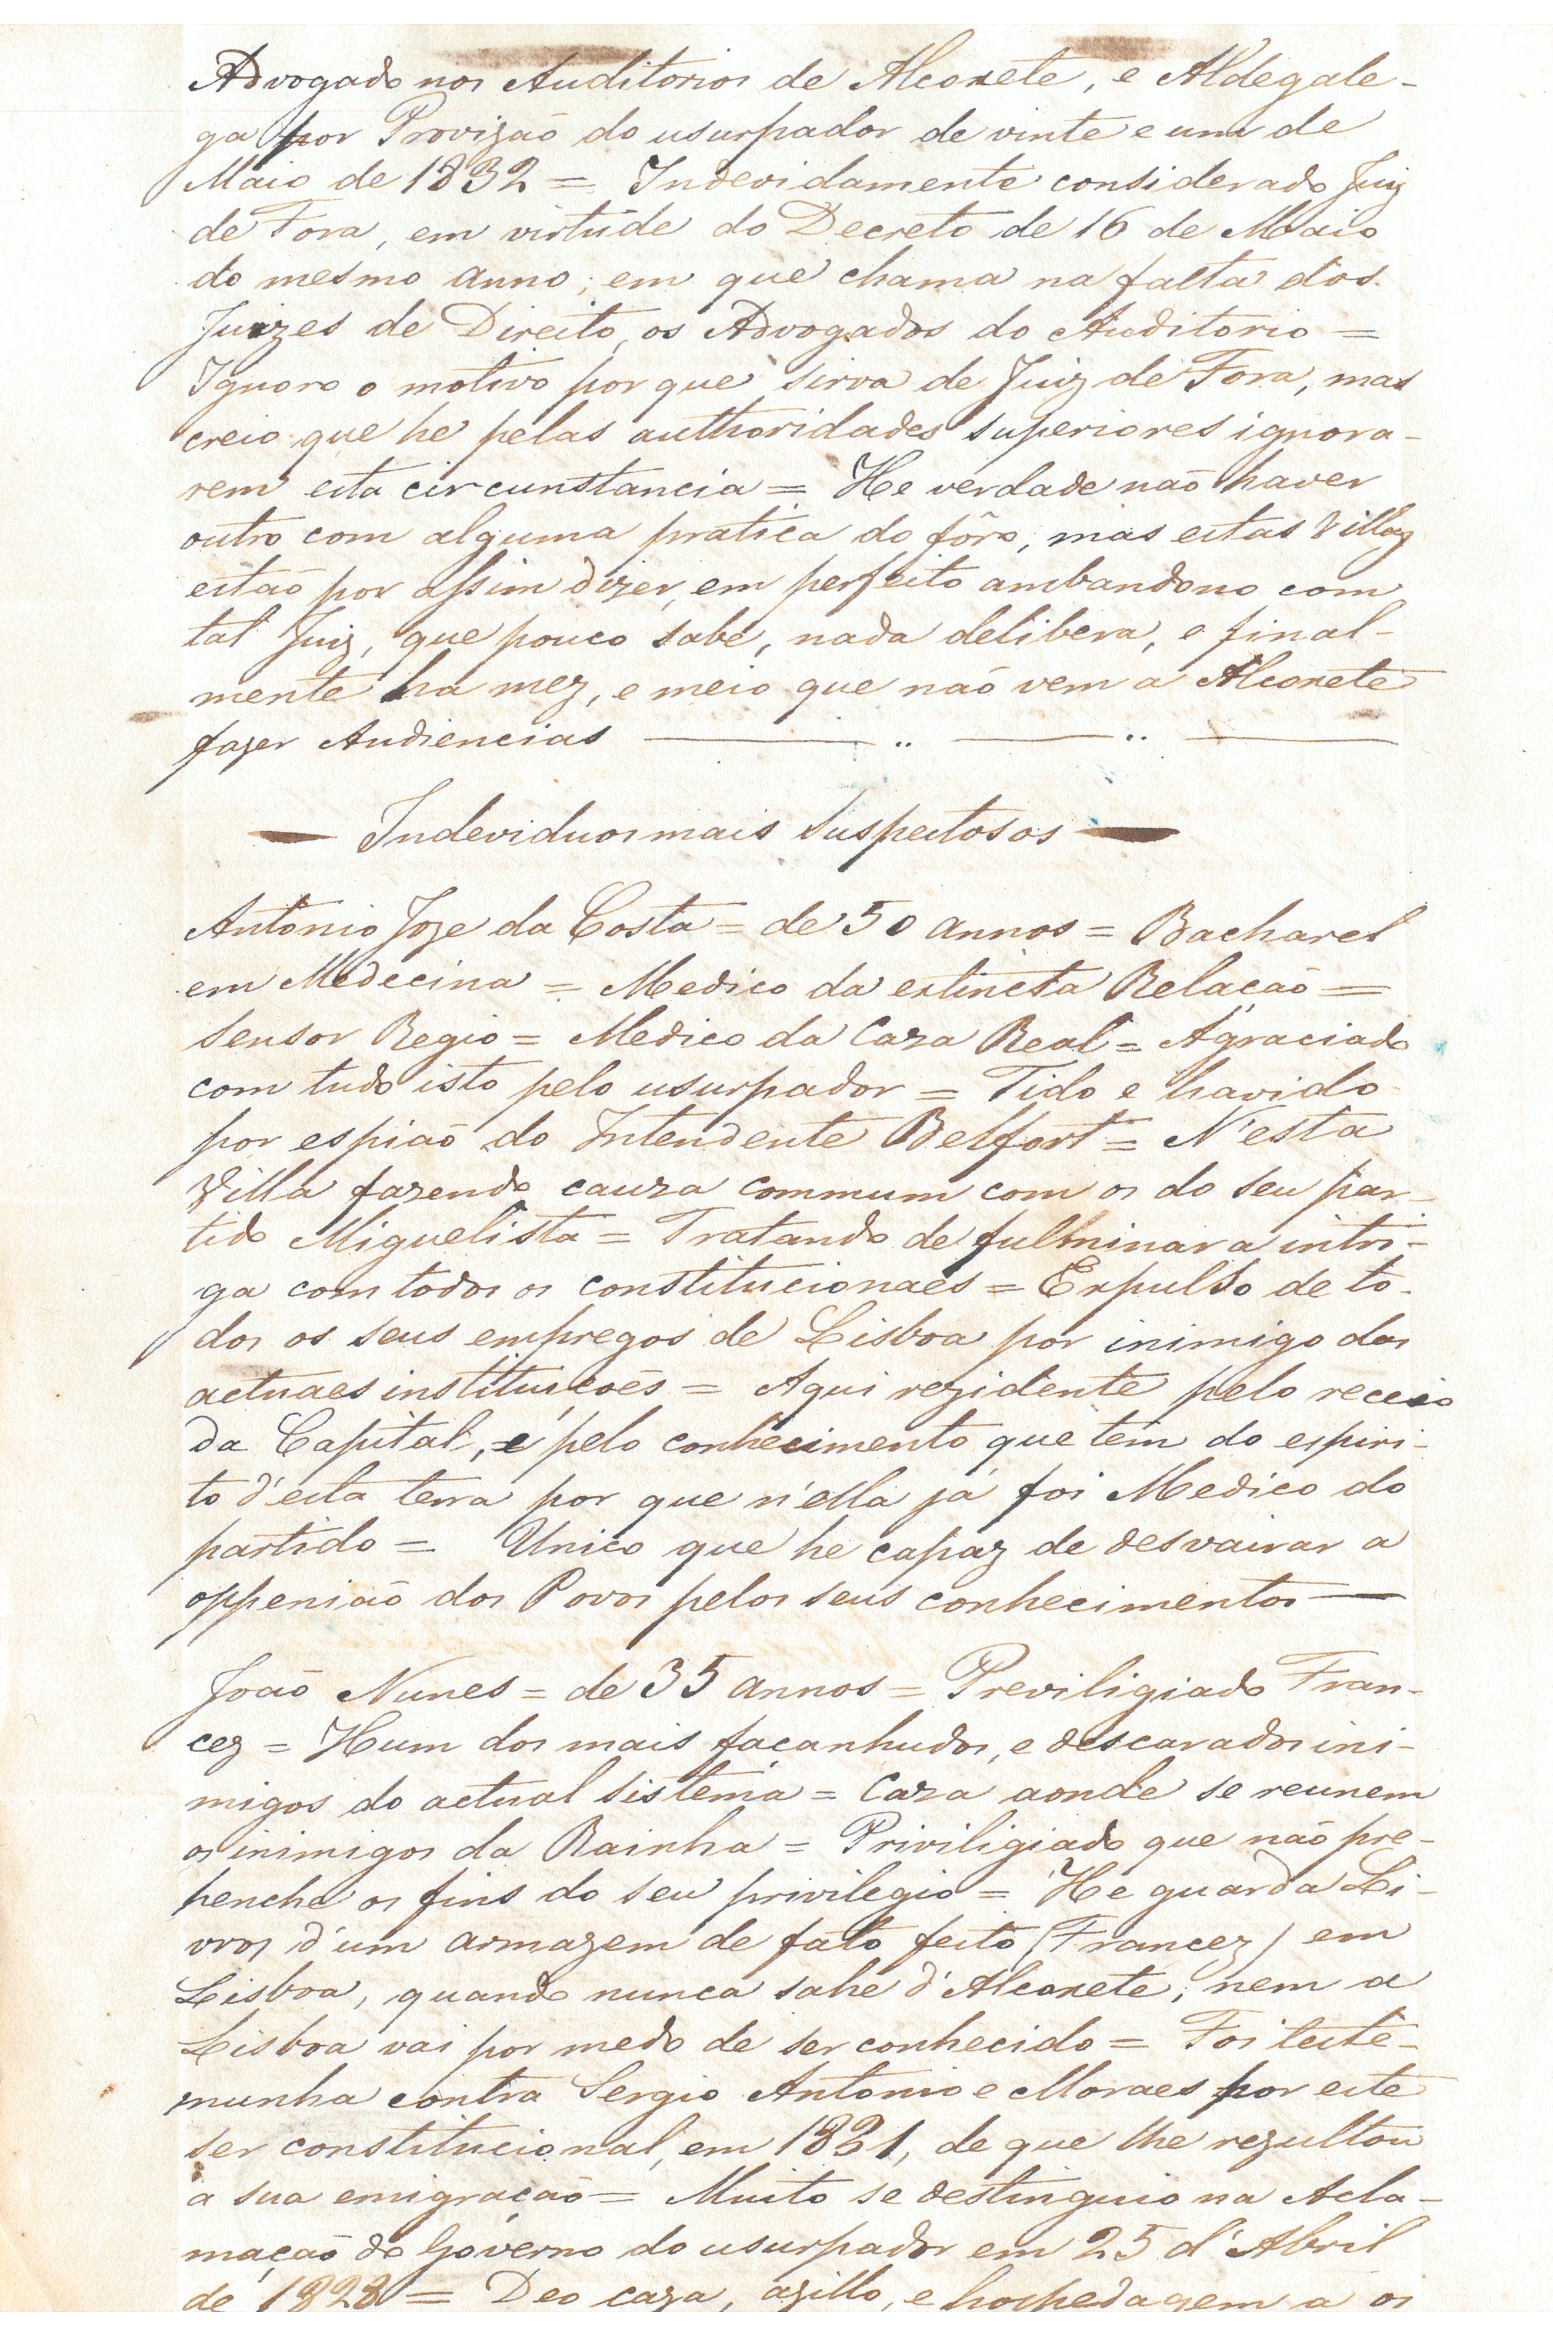 Advogado nos Auditorios de Alcoxete, e Aldegale-
ga por Provizaõ do usurpador de vinte e um de
Maio de 1832 = Indevidamente considerado Juiz
de Fora, em virtude do Decreto de 16 de Maio
do mesmo anno, em que chama na falta dos
Juizes de Direito, os Advogados do Auditorio =
Ignoro o motivo por que sirva de Juiz de Fora, mas
creio que he pelas authoridades superiores ignora-
rem esta circunstancia = He verdade naõ haver
outro com alguma pratica do fôro, mas estas Villas
estaõ por assim dizer, em perfeito ambandono com
tal Juiz, que pouco sabe, nada delibera, e final-
mente ha mez, e meio que naõ vem a Alcoxete
fazer Audiencias
Indeviduos mais Suspeitosos
Antonio Joze da Costa = de 50 annos = Bacharel
em Medecina = Medico da extincta Relaçaõ =
Sensor Regio = Medico da Caza Real = Agraciado
com tudo isto pelo usurpador = Tido e havido
por espiaõ do Intendente Belfort = N'esta
Villa fazendo cauza commum com os do seu par-
tido Miguelista = Tratando de fulminar a intri-
ga com todos os constitucionaes = Expulso de to-
dos os seus empregos de Lisboa por inimigo das
actuaes instituiçoẽs = Aqui rezidente pelo receio
da Capital, e pelo conhecimento que tem do espiri-
to d'esta terra por que n'ella já foi Medico do
partido = Unico que he capaz de desvairar a
oppeniaõ dos Povos pelos seus conhecimentos
Joaõ Nunes = de 35 annos = Previligiado Fran-
cez = Hum dos mais façanhudos, e descarados ini-
migos do actual sistema = Caza aonde se reunem
os inimigos da Rainha = Priviligiado que naõ pre-
henche os fins do seu privilegio = He guarda Li-
vros d'um armazem de fato feito (Francez) em
Lisboa, quando nunca sahe d'Alcoxete, nem a
Lisboa vai por medo de ser conhecido = Foi teste-
munha contra Sergio Antonio e Moraes por este
ser constitucional, em 1831, de que lhe rezultou
a sua emigraçaõ = Muito se destinguio na Acla-
maçaõ do Governo do usurpador em 25 d'Abril
de 1828 = Deo caza, azillo, e hospedagem a os